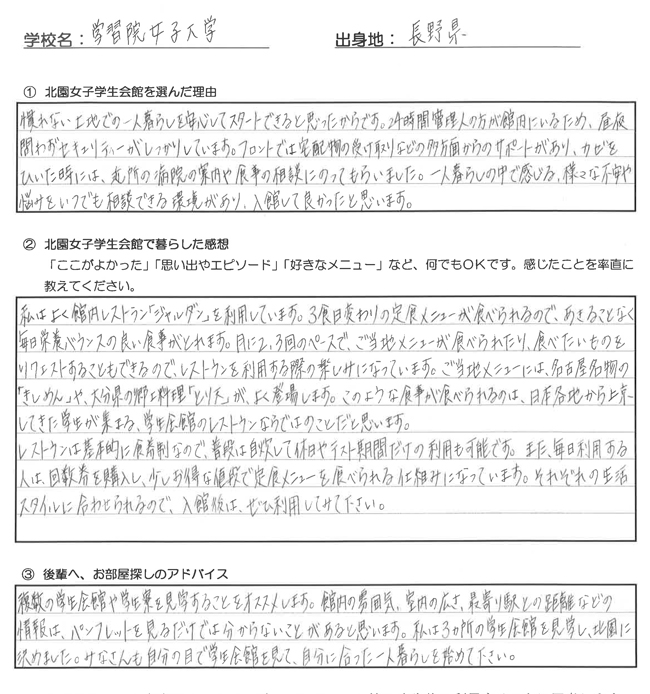 学校名：学習院女子大学　出身地：長野県
① 北園女子学生会館を選んだ理由
慣れない土地での一人暮らしを安心してスタートできると思ったからです。24時間管理人の方が館内にいるため、昼夜
問わずセキュリティーがしっかりしています。フロントでは宅配物の受け取りなどの多方面からのサポートがあり、カゼを
ひいた時には、近所の病院の案内や食事の相談にのってもらいました。一人暮らしの中で感じる、様々な不安や
悩みをいつでも相談できる環境があり、入館して良かったと思います。
② 北園女子学生会館で暮らした感想
「ここがよかった」「思い出やエピソード」「好きなメニュー」など、何でもOKです。感じたことを率直に
教えてください。
私はよく館内レストラン「ジャルダン」を利用しています。3食日変わりの定食メニューが食べられるので、あきることなく
毎日栄養バランスの良い食事がとれます。月に2,3回のペースで、ご当地メニューが食べられたり、食べたいものを
リクエストすることもできるので、レストランを利用する際の楽しみになっています。ご当地メニューには、名古屋名物の
「きしめん」や、大分県の郷土料理「とり天」が、よく登場します。このような食事が食べられるのは、日本各地から上京
してきた学生が集まる、学生会館のレストランならではのことだと思います。
レストランは基本的に食券制なので、普段は自炊して休日やテスト期間だけの利用も可能です。また、毎日利用する
人は、回数券を購入し、少しお得な値段で定食メニューを食べられる仕組みになっています。それぞれの生活
スタイルに合わせられるので、入館後は、ぜひ利用してみて下さい。
③ 後輩へ、お部屋探しのアドバイス
複数の学生会館や学生寮を見学することをオススメします。館内の雰囲気、室内の広さ、最寄り駅との距離などの
情報は、パンフレットを見るだけでは分からないことがあると思います。私は3カ所の学生会館を見学し、北園に
決めました。みなさんも自分の目で学生会館を見て、自分に合った一人暮らしを始めて下さい。